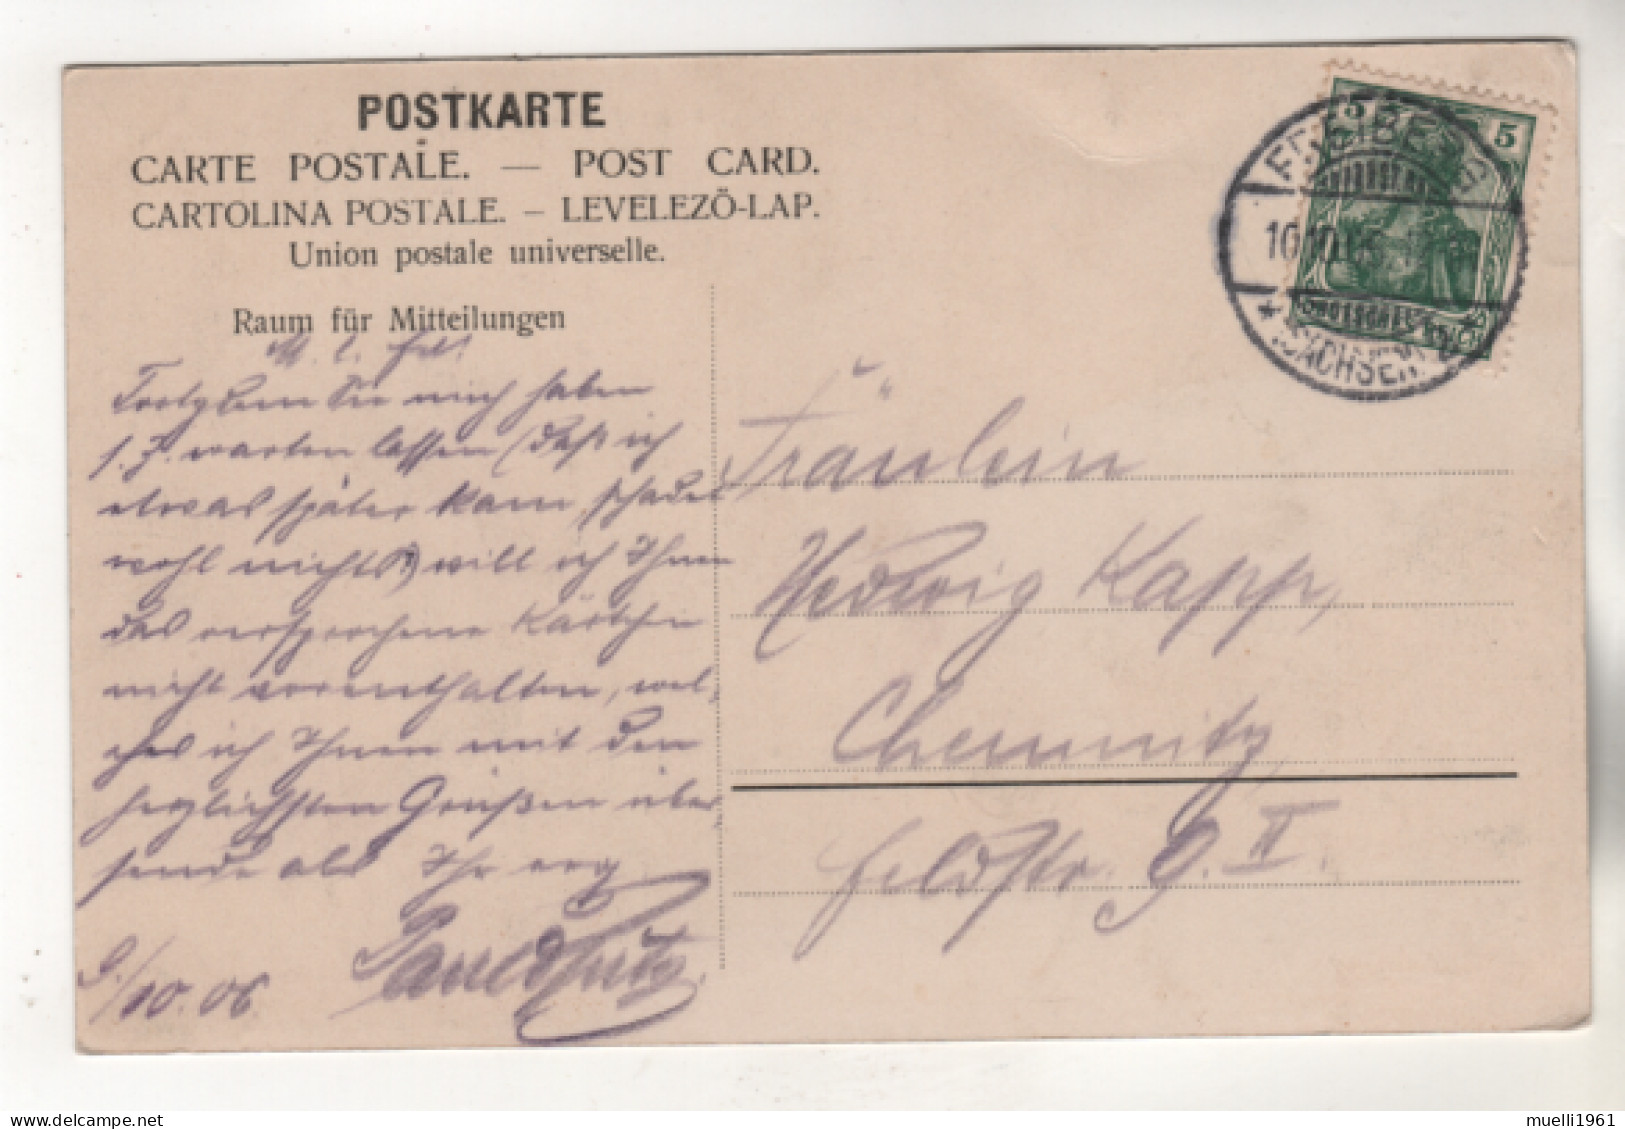 POSTKARTE
CARTE POSTALE. — POST CARD.
CARTOLINA POSTALE. – LEVELEZÖ-LAP.
Union postale universelle.
Raum für Mitteilungen
M. l. Frl.
Trotzdem Sie mich haben
warten lassen (daß ich
etwas später kam, schadet
wohl nichts) will ich Ihnen
das versprochene Kärtchen
nicht vorenthalten, wel-
ches ich Ihnen mit den
herzlichsten Grüßen über-
sende als Ihr erg.
9./10.06.
FREIBERG
SACHSEN
5 5
DEUTSCHES REICH
Fräulein
Hedwig Kapp,
Chemnitz
Feldstr. 9. II.
muelli1961